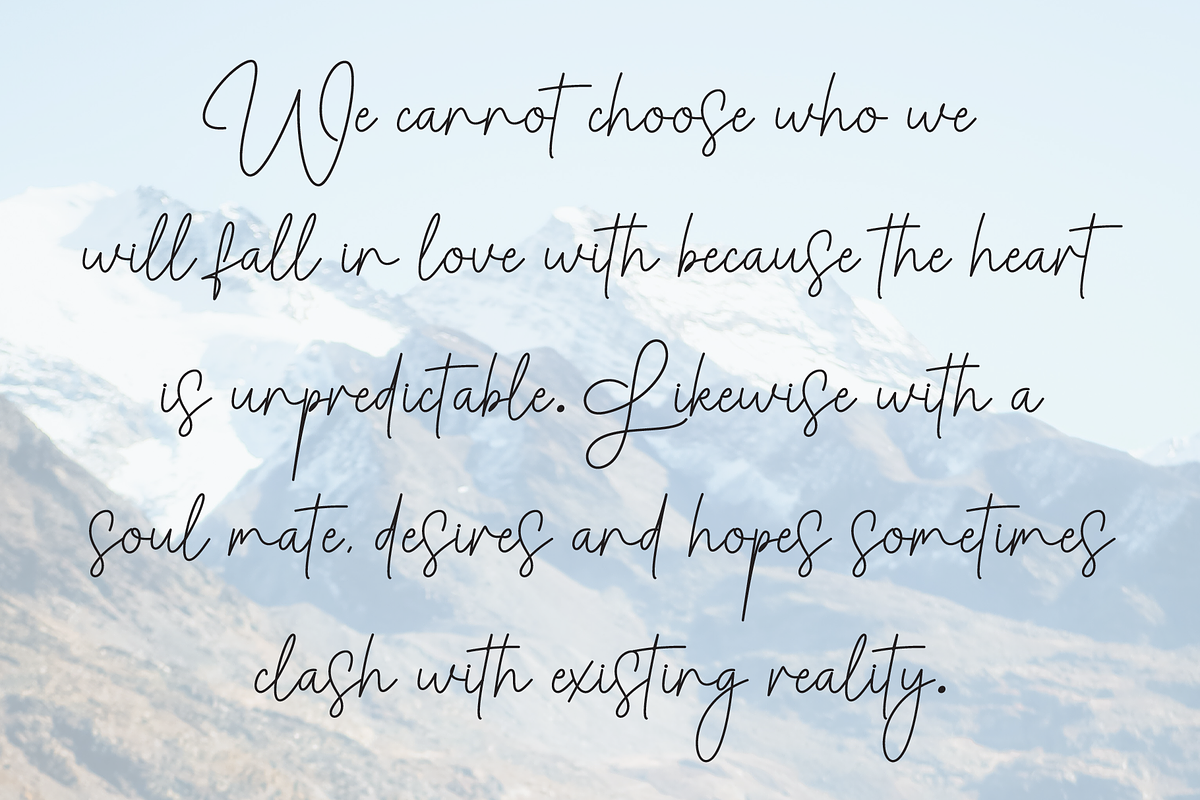 We cannot choose who we
will fall in love with because the heart
is unpredictable. Likewise with a
soul mate, desires and hopes sometimes
clash with existing reality.